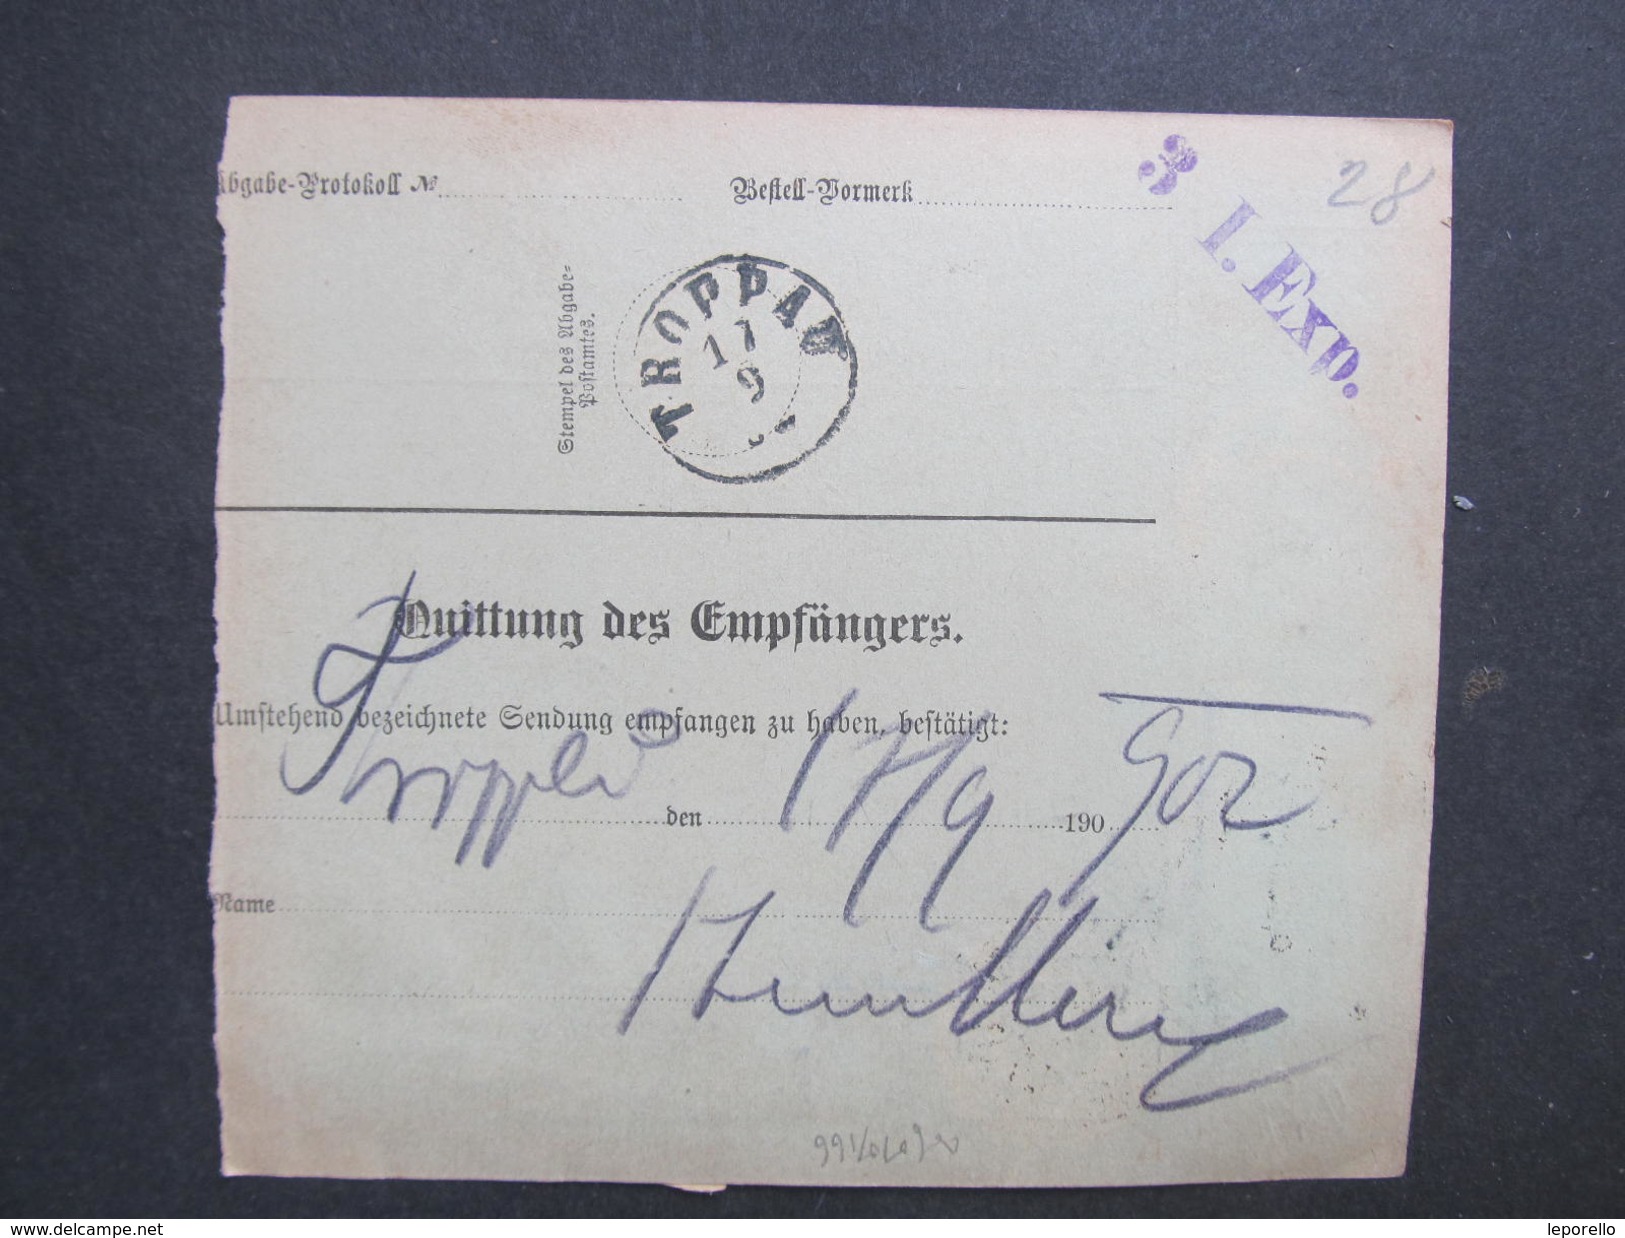 Abgabe-Protokoll №
Bestell-Vormerk
3
28
1. Exp.
Stempel des Abgabe-
Postamtes.
TROPPAU
11
9
Quittung des Empfängers.
Umstehend bezeichnete Sendung empfangen zu haben, bestätigt:
den 17/9 190 902
Name
delcampe.net
leporello